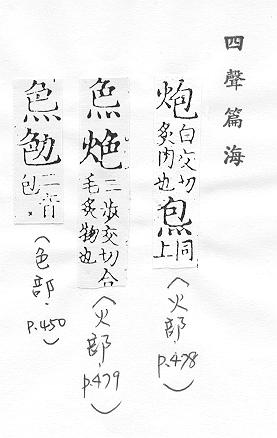 四聲篇海
炮白交切炙肉也炰上同(火部.p.478)
步交切合毛炙物也(火部.p.479)
二音包(色部.p.450)